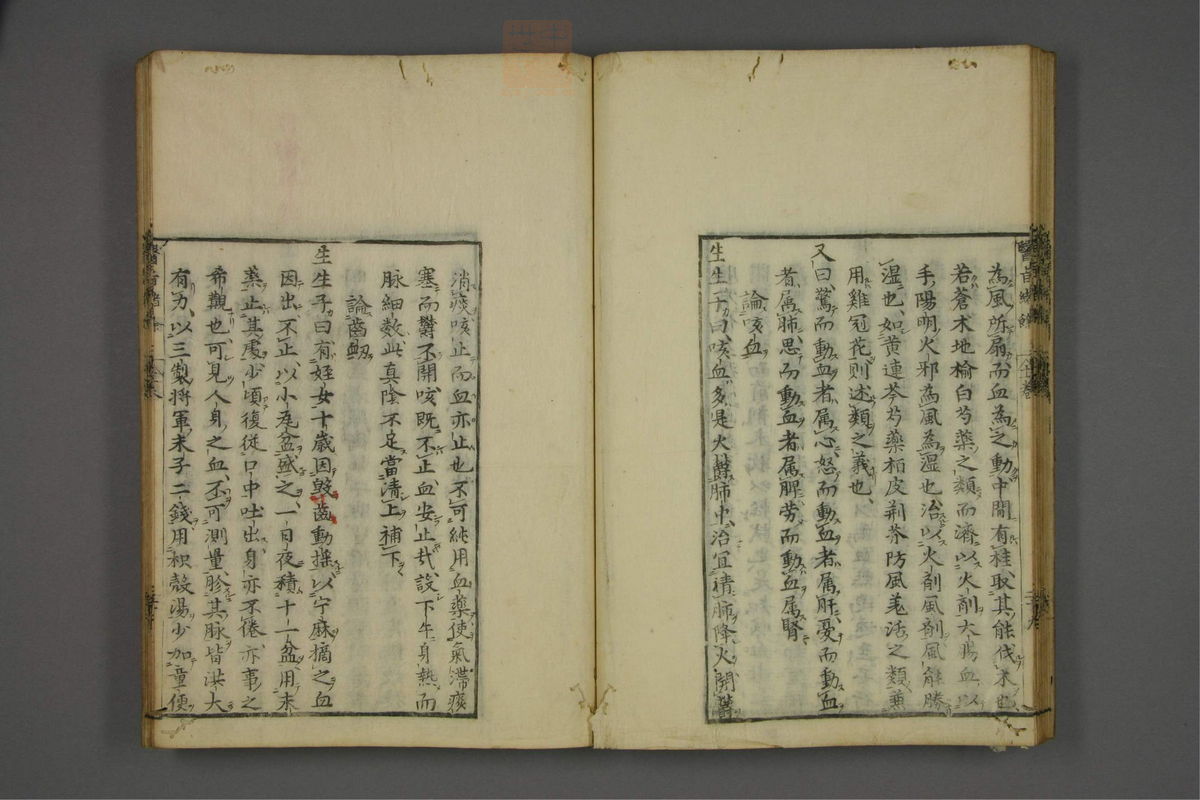 為風所扇而血為之動中間有桂取其能伐木也
若蒼朮地榆白芍藥之類而濟以火劑大腸血以
手陽明火邪為風為湿也治以火劑風劑風能勝
湿也如黄連芩芍藥栢皮荆芥防風羗活之類兼
用雞冠花則述類之義也
又曰驚而動血者属心怒而動血者属肝憂而動血
者属肺思而動血者属脾劳而動血属腎
論咳血
生生子曰咳血多是火欝肺中治宜清肺降火開欝
消痰咳止而血亦止也不可純用血藥使氣滞痰
塞而欝不開咳既不止血安止哉設下午身熱而
脉細数此真陰不足當清上補下
論齒衂
生生子曰有姪女十歳因毀齒動揺以宁麻摘之血
因出不止以小瓦盆盛之一日夜積十一盆用末
藥止其處少頃復従口中吐出身亦不倦亦事之
希覯也可見人身之血不可測量胗其脉皆洪大
有力以三製将軍末子二錢用枳殼湯少加童便